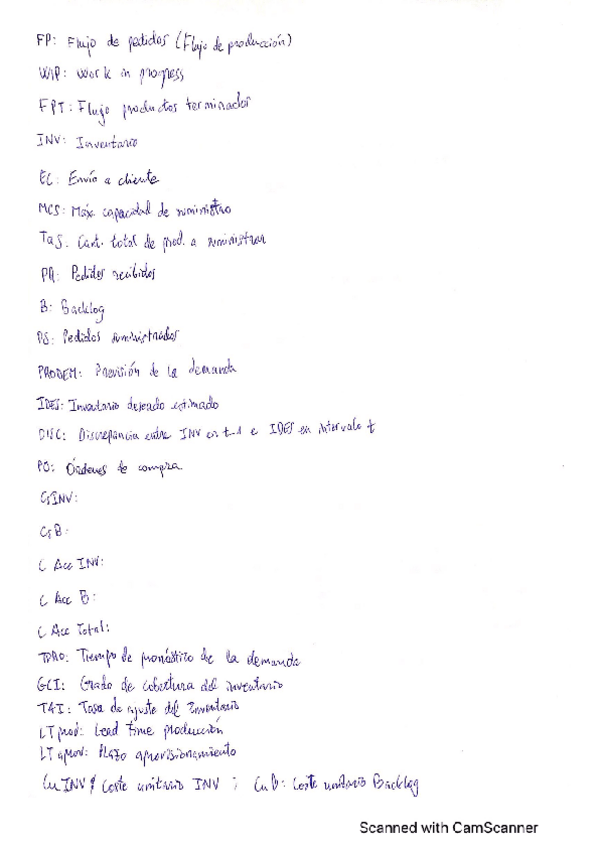 FP: Flujo de pedidos (Flujo de producción)
WIP: Work in progress
FPT: Flujo productos terminados
INV: Inventario
EC: Envío a cliente
MCS: Máx. capacidad de suministro
TaS: Cant. total de prod. a suministrar
PR: Pedidos recibidos
B: Backlog
PS: Pedidos suministrados
PRODEM: Previsión de la demanda
IDES: Inventario deseado estimado
DISC: Discrepancia entre INV en t-1 e IDES en intervalo t
PO: Órdenes de compra
CsINV:
CsB:
C Acc INV:
C Acc B:
C Acc Total:
TPRO: Tiempo de pronóstico de la demanda
GCI: Grado de cobertura del inventario
TAI: Tasa de ajuste del Inventario
LT prod: Lead time producción
LT aprov: Plazo aprovisionamiento
Cu INV: Coste unitario INV ; Cu B: Coste unitario Backlog
Scanned with CamScanner